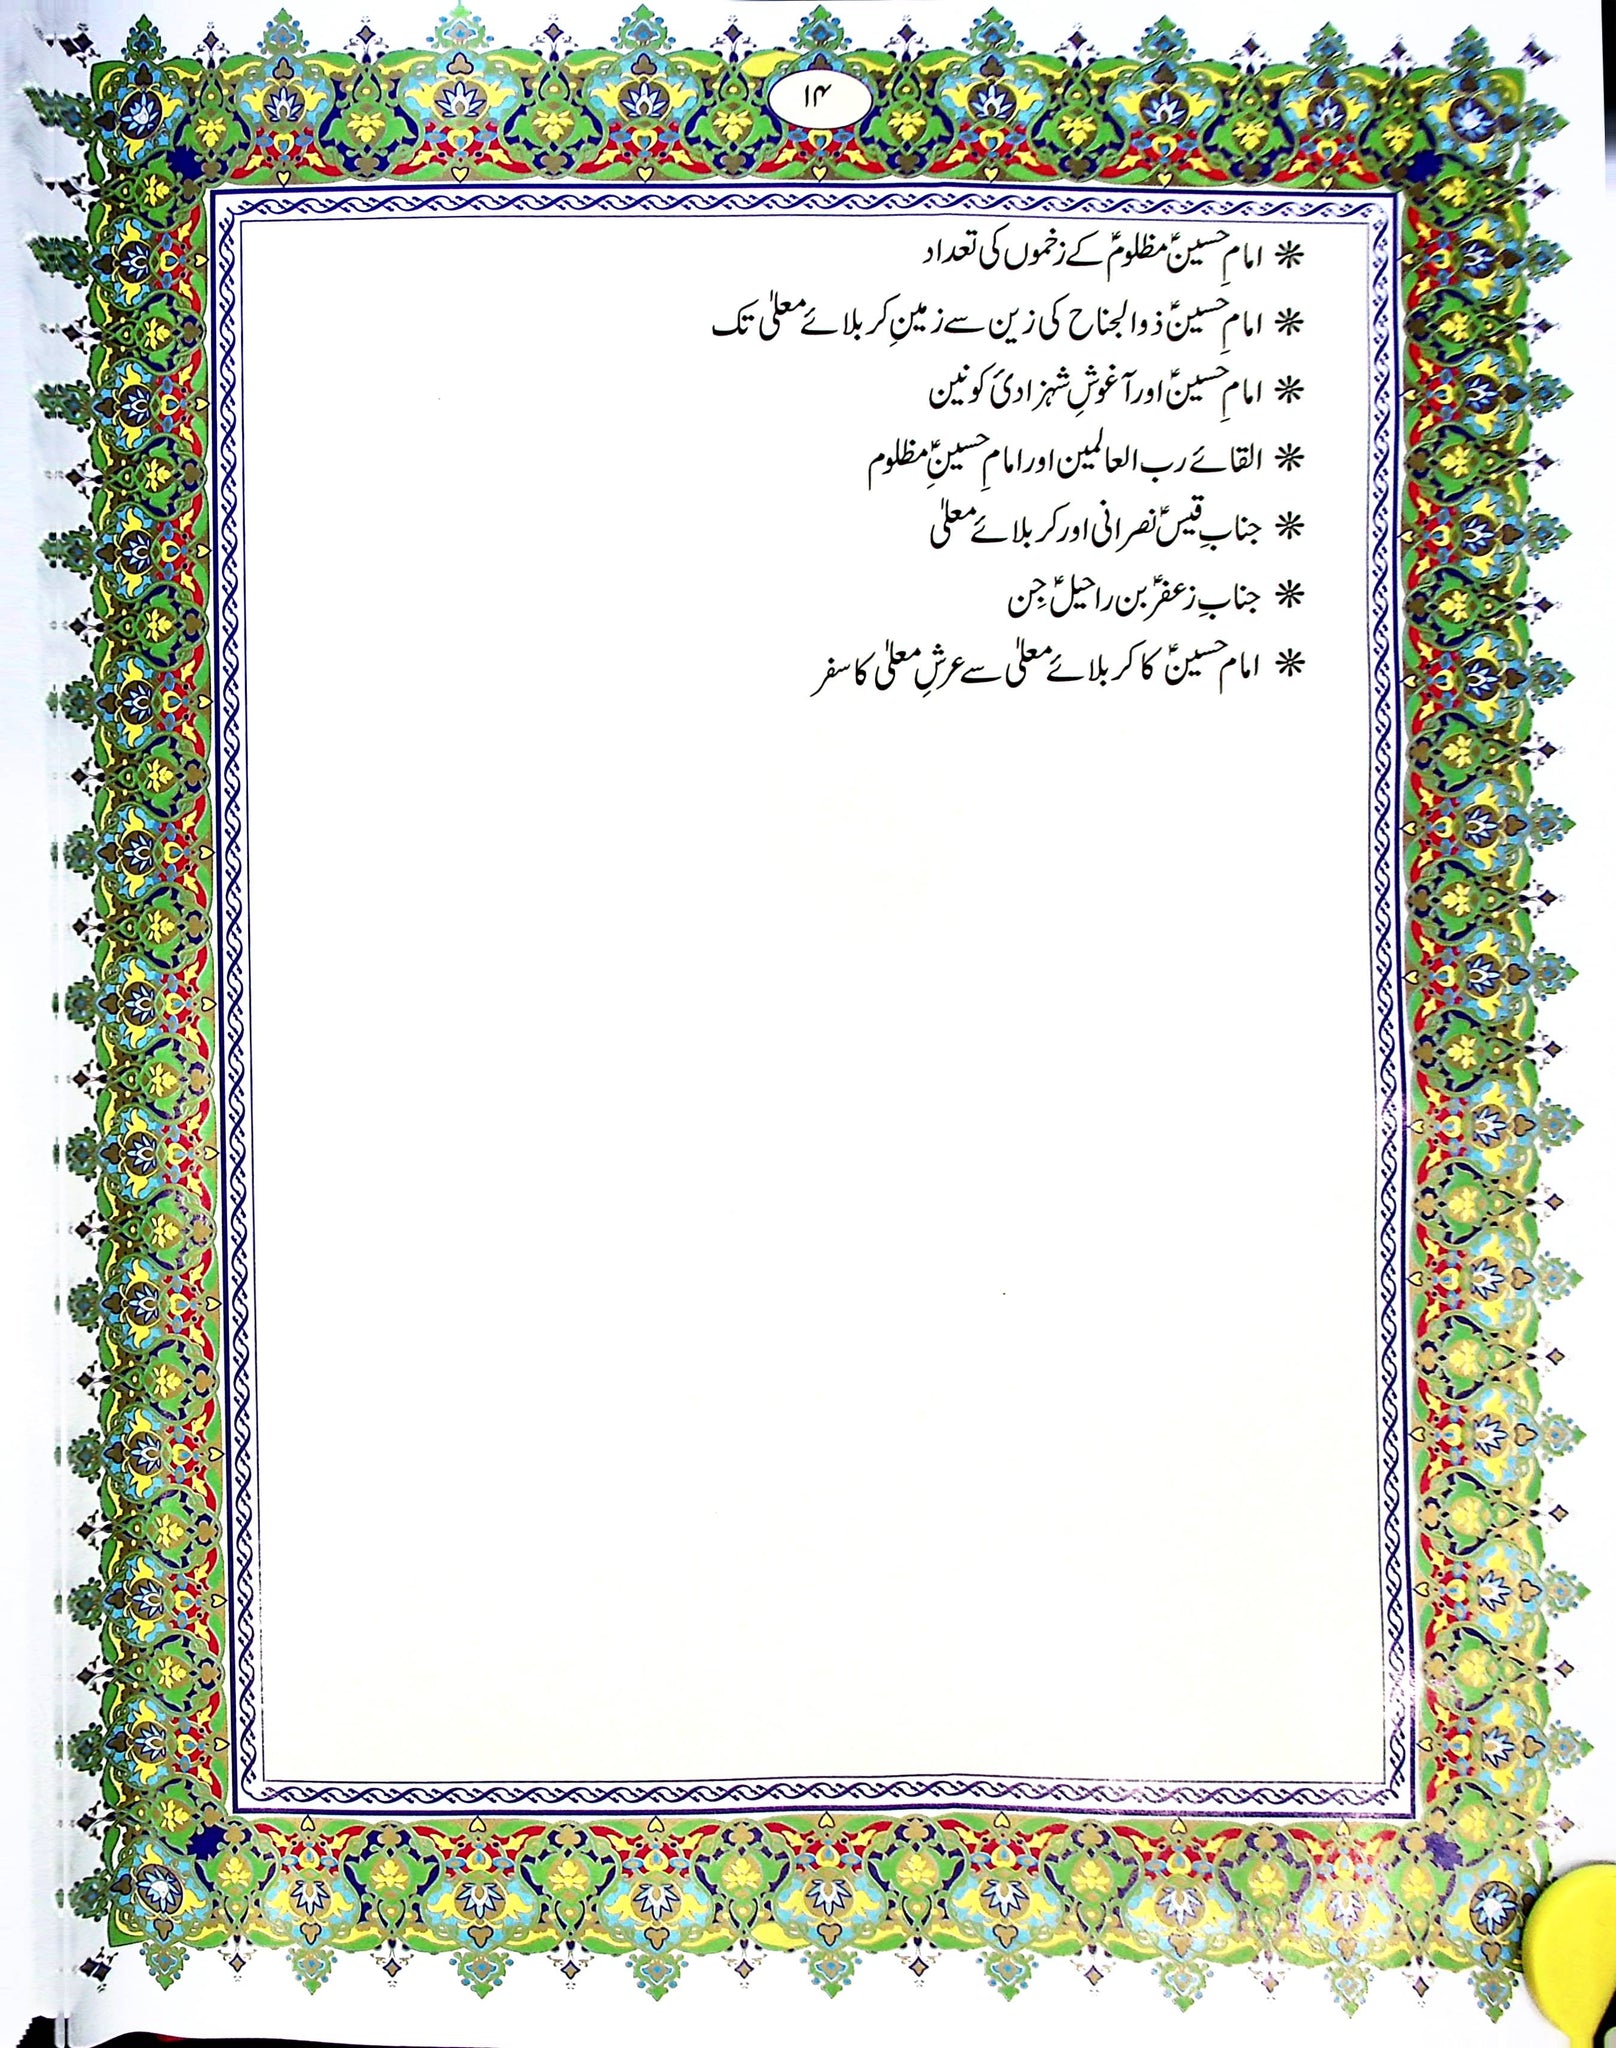 ۱۴
❋ امامِ حسینؑ مظلومؑ کے زخموں کی تعداد
❋ امامِ حسینؑ ذوالجناح کی زین سے زمینِ کربلائے معلیٰ تک
❋ امامِ حسینؑ اور آغوشِ شہزادیٔ کونین
❋ القائے رب العالمین اور امامِ حسینؑ مظلوم
❋ جنابِ قیسؑ نصرانی اور کربلائے معلیٰ
❋ جنابِ زعفرؑ بن راحیلؑ جِن
❋ امام حسینؑ کا کربلائے معلیٰ سے عرشِ معلیٰ کا سفر